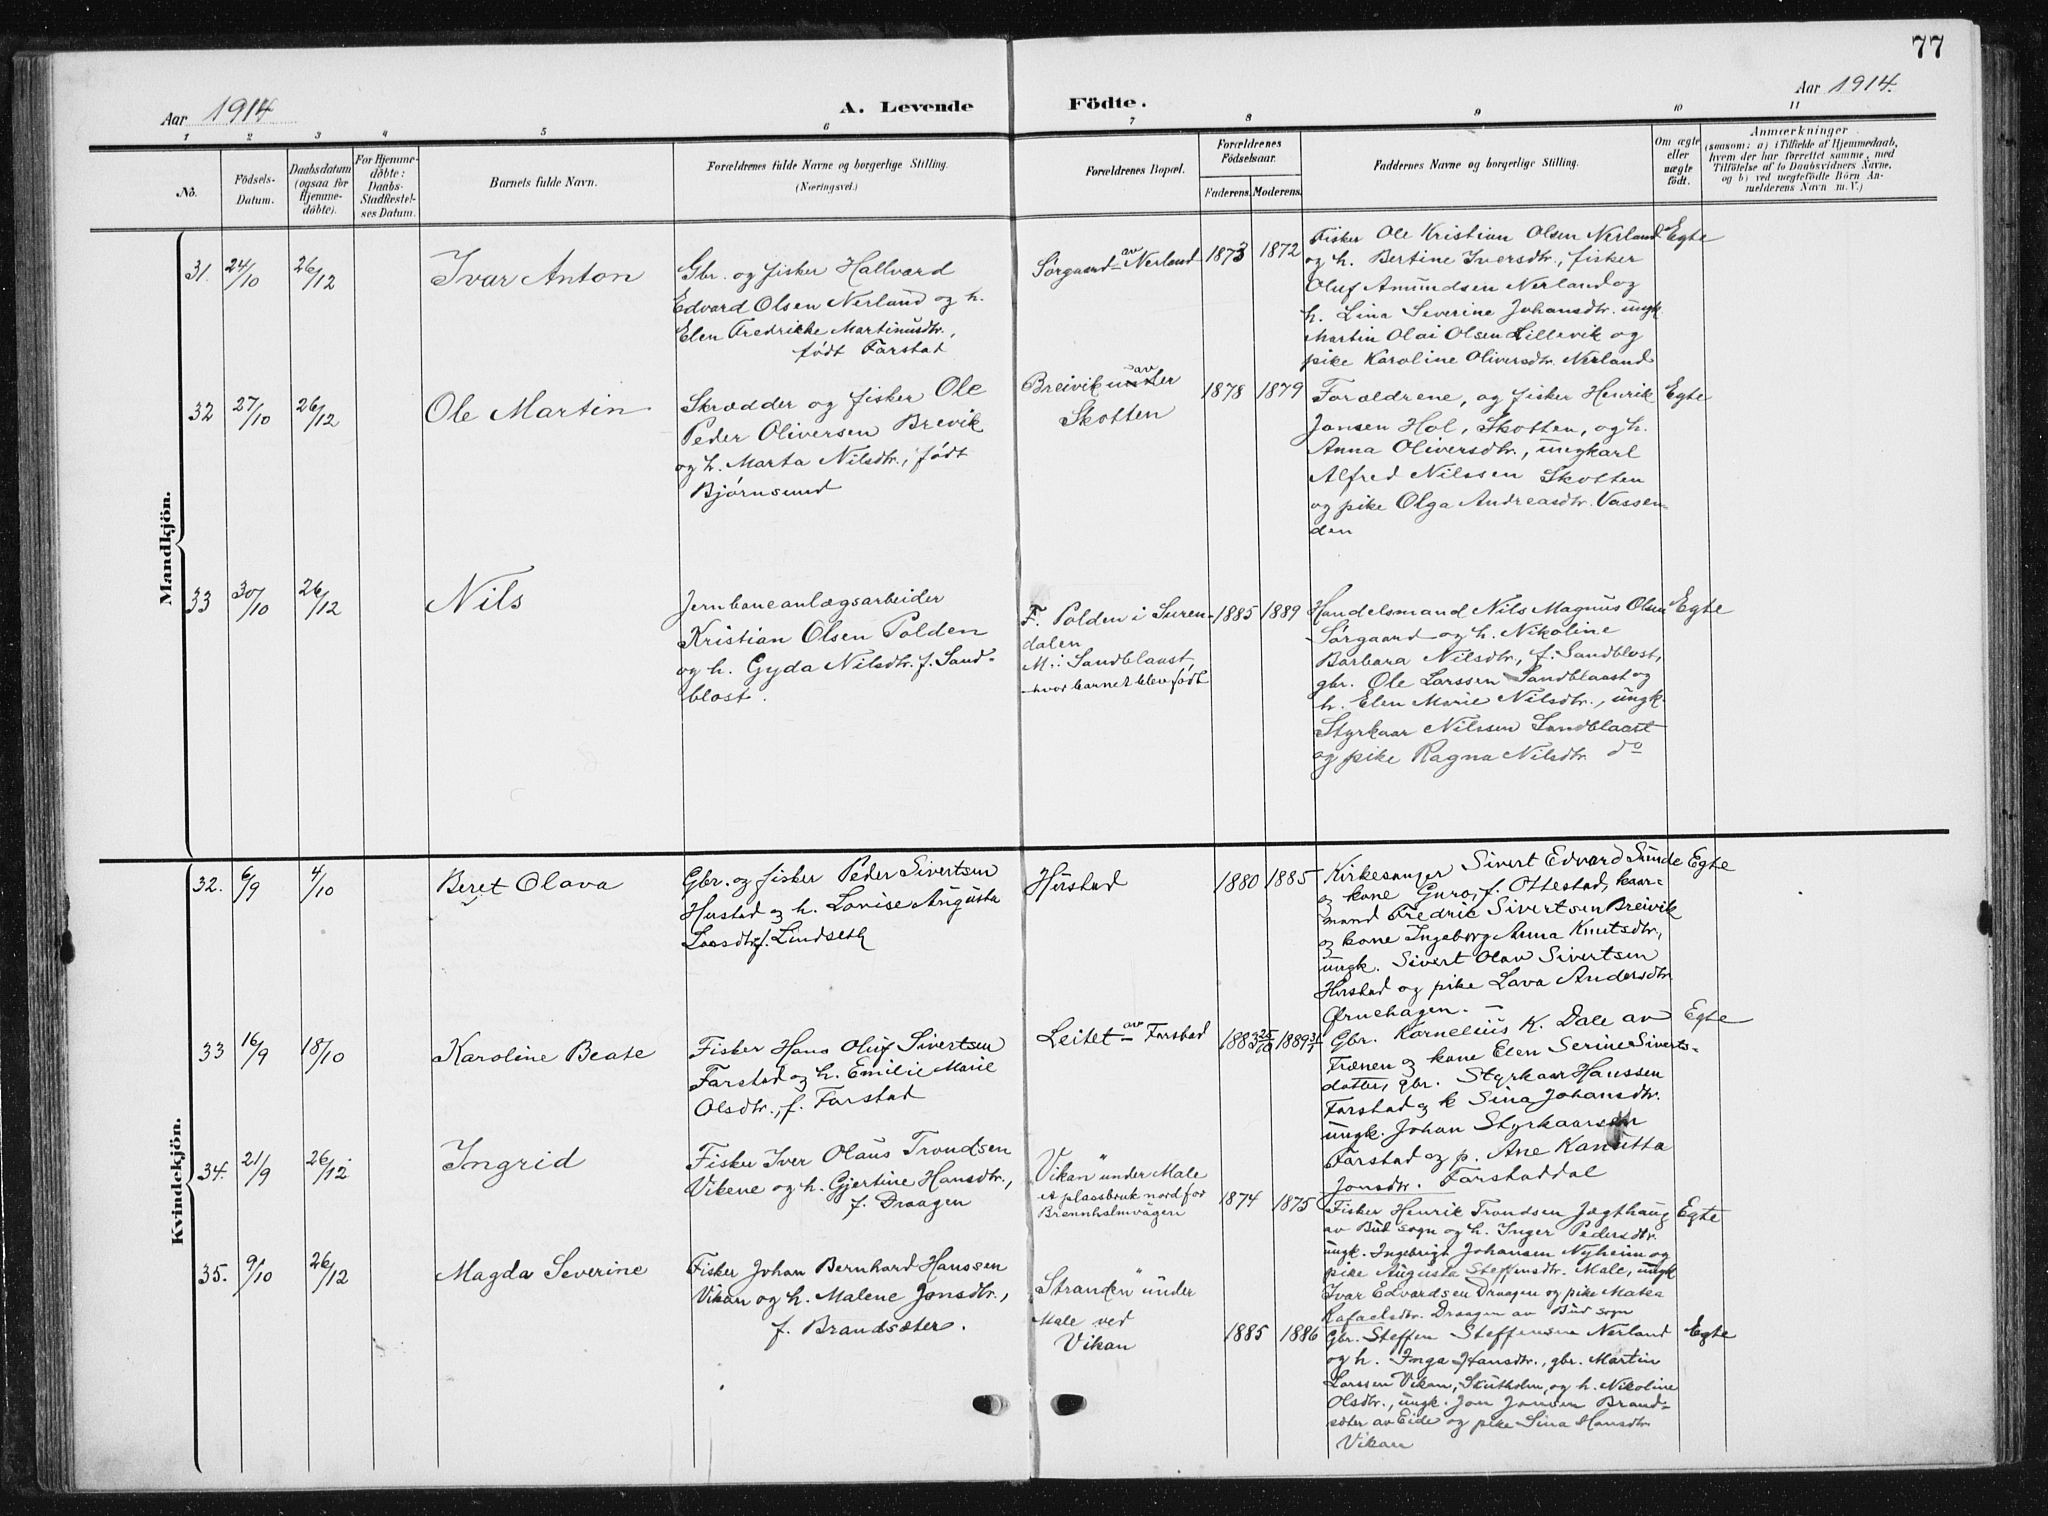 77
Aar 1914
A. Levende
Födte.
Aar 1914.
1 2 3 4 5 6 7 8 9 10 11
No.
Födsels-
Datum.
Daabsdatum
(ogsaa for
Hjemme-
døbte).
For Hjemme-
døbte:
Daabs-
Stadfæstel-
ses Datum.
Barnets fulde Navn.
Forældrenes fulde Navne og borgerlige Stilling.
(Næringsvei.)
Forældrenes Bopæl.
Forældrenes
Födselsaar.
Faderens. Moderens.
Faddernes Navne og borgerlige Stilling.
Om ægte
eller
uægte
født.
Anmærkninger
(saasom: a) i Tilfælde af Hjemmedaab,
hvem der har forrettet samme, med
Tilføielse af to Daabsvidners Navne,
og b) ved uægtefödte Börn An-
melderens Navn m. V.)
Mandkjön.
31.
24/10
26/12
Ivar Anton
Gbr. og fisker Hallvard
Edvard Olsen Nerland og h.
Elen Fredrikke Martinusdtr.,
født Farstad
Sørgaard av Nerland
1873
1872
Fisker Ole Kristian Olsen Nerland
og h. Bertine Iversdtr., fisker
Oluf Amundsen Nerland og
h. Lina Severine Johansdtr. ungk
Martin Olai Olsen Lillevik og
pike Karoline Oliversdtr. Nerland
Egte
32
27/10
26/12
Ole Martin
Skrædder og fisker Ole
Peder Oliversen Brevik
og h. Marta Nilsdtr., født
Bjørnsund
Breivik under av
Skotten
1878
1879
Forældrene, og fisker Henrik
Jansen Hol, Skotten, og h.
Anna Oliversdtr., ungkarl
Alfred Nilssen Skotten
og pike Olga Andreasdtr. Vassen-
den
Egte
33
30/10
26/12
Nils
Jernbaneanlægsarbeider
Kristian Olsen Polden
og h. Gyda Nilsdtr. f. Sand-
blost.
F. Polden i Suren-
dalen
M. i Sandblaast,
hvor barnet blev født
1885
1889
Handelsmand Nils Magnus Olsen
Sørgaard og h. Nikoline
Barbara Nilsdtr, f. Sandblost,
gbr. Ole Larssen Sandblaast og
h. Elen Marie Nilsdtr., ungk.
Styrkaar Nilssen Sandblaast
og pike Ragna Nilsdtr. do
Egte
Kvindekjön.
32.
6/9
4/10
Beret Olava
Gbr. og fisker Peder Sivertsen
Hustad og h. Lovise Augusta
Larsdtr f. Lindseth
Hustad
1880
1885
Kirkesanger Sivert Edvard Sunde
og kone Guro, f. Ottestad, kaar-
mand Fredrik Sivertsen Breivik
og kone Ingeborg Anna Knutsdtr,
ungk. Sivert Olav Sivertsen
Hustad og pike Lava Andersdtr
Ørnehagen.
Egte
33
16/9
18/10
Karoline Beate
Fisker Hans Oluf Sivertsen
Farstad og h. Emilie Marie
Olsdtr., f. Farstad
Leitet av Farstad
1883 25/10
1889
Gbr. Kornelius K. Dale av
Frænen og kone Elen Serine Siverts-
datter, gbr. Styrkaar Hanssen
Farstad og k Sina Johansdtr.
ungk. Johan Styrkaarsen
Farstad og p. Ane Kanutta
Jonsdtr. Farstaddal
Egte
34.
21/9
26/12
Ingrid
Fisker Iver Olaus Trondsen
Vikene og h. Gjertine Hansdtr.,
f. Draagen
Vikan" under Male
et plassbruk nord for
Brennholmvågen
1874
1875
Fisker Henrik Trondsen Jægthaug
av Bud sogn og h. Inger Pedersdtr.
ungk. Ingebrigt Johansen Nyheim og
pike Augusta Steffensdtr. Male, ungk
Ivar Edvardsen Draagen og pike Matea
Rafaelsdtr. Draagen av Bud sogn
Egte
35.
9/10
26/12
Magda Severine
Fisker Johan Bernhard Hanssen
Vikan og h. Malene Jonsdtr.,
f. Brandsæter.
Stranden" under
Male ved
Vikan
1885
1886
Gbr. Steffen Steffensen Nerland
og h. Inga Hansdtr., gbr. Martin
Larssen Vikan, Skutholm, og h. Nikoline
Olsdtr., ungk. Jon Jonsen Brand-
sæter av Eide og pike Sina Hansdtr.
Vikan
Egte